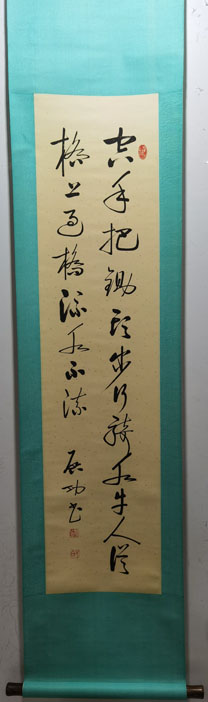 空手把鋤頭步行騎水牛人從
橋上過橋流水不流
启功书